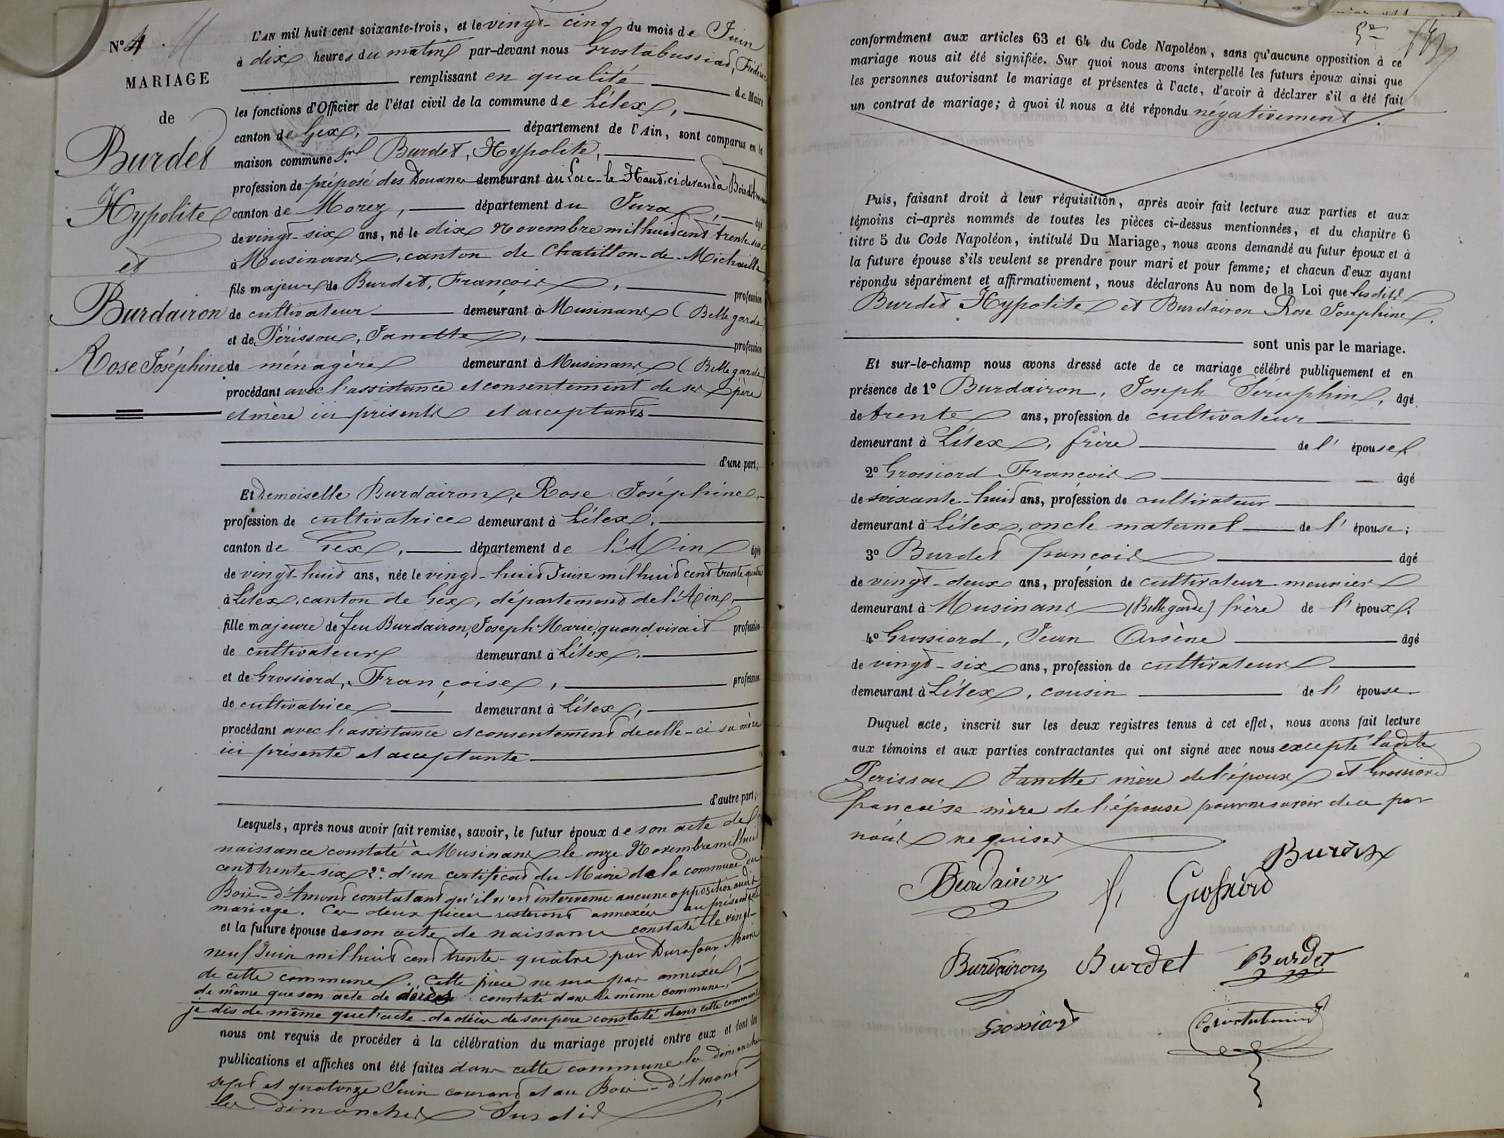 N° 4
MARIAGE
de
Burdet
Hypolite
et
Burdairon
Rose Joséphine
L'AN mil huit cent soixante-trois, et le vingt-cinq du mois de Juin
à dix heures du matin par-devant nous Grostabussiat,
remplissant en qualité de Maire
les fonctions d'Officier de l'état civil de la commune de Lélex,
canton de Gex, département de l'Ain, sont comparus en la
maison commune Sr Burdet, Hypolite,
profession de préposé des Douanes demeurant au Lac-le Haut, ci devant à Bois d'Amont
canton de Morez, département du Jura, âgé
de vingt-six ans, né le dix Novembre mil huit cent trente six
à Musinans, canton de Chatillon-de-Michaille
fils majeur de Burdet, François, profession
de cultivateur demeurant à Musinans (Bellegarde
et de Périssou, Janette, profession
de ménagère demeurant à Musinans (Bellegarde
procédant avec l'assistance et consentement de ses père
et mère ici présents et acceptants
d'une part;
Et demoiselle Burdairon, Rose Joséphine,
profession de cultivatrice demeurant à Lélex,
canton de Gex, département de l'Ain âgée
de vingt-huit ans, née le vingt-huit Juin mil huit cent trente quatre
à Lélex, canton de Gex, département de l'Ain,
fille majeure de feu Burdairon, Joseph Marie, quand vivait profession
de cultivateur demeurant à Lélex,
et de Grossiord, Françoise, profession
de cultivatrice demeurant à Lélex,
procédant avec l'assistance et consentement de celle-ci sa mère
ici présente et acceptante
d'autre part;
Lesquels, après nous avoir fait remise, savoir, le futur époux de son acte de
naissance constaté à Musinans le onze Novembre mil huit
cent trente-six 2° d'un certificat du Maire de la commune du
Bois-d'Amont constatant qu'il n'est intervenu aucune opposition audit
mariage. Ces deux pièces resteront annexées au présent acte
et la future épouse de son acte de naissance constaté le vingt-
neuf Juin mil huit cent trente-quatre par Durafour Maire
de cette commune, cette pièce ne sera pas annexée,
de même que son acte de décès constaté dans la même commune,
je dis de même que l'acte de décès de son père constaté dans cette commune
nous ont requis de procéder à la célébration du mariage projeté entre eux et dont les
publications et affiches ont été faites dans cette commune les dimanches
sept et quatorze Juin courant et au Bois-d'Amont
les Dimanches Susdits,
conformément aux articles 63 et 64 du Code Napoléon, sans qu'aucune opposition à ce
mariage nous ait été signifiée. Sur quoi nous avons interpellé les futurs époux ainsi que
les personnes autorisant le mariage et présentes à l'acte, d'avoir à déclarer s'il a été fait
un contrat de mariage; à quoi il nous a été répondu négativement.
Puis, faisant droit à leur réquisition, après avoir fait lecture aux parties et aux
témoins ci-après nommés de toutes les pièces ci-dessus mentionnées, et du chapitre 6
titre 5 du Code Napoléon, intitulé Du Mariage, nous avons demandé au futur époux et à
la future épouse s'ils veulent se prendre pour mari et pour femme; et chacun d'eux ayant
répondu séparément et affirmativement, nous déclarons Au nom de la Loi que lesdits
Burdet Hypolite et Burdairon Rose Josephine,
sont unis par le mariage.
Et sur-le-champ nous avons dressé acte de ce mariage célébré publiquement et en
présence de 1° Burdairon, Joseph Séraphin, âgé
de trente ans, profession de cultivateur
demeurant à Lélex, frère de l'épouse
2° Grossiord François âgé
de soixante-huit ans, profession de cultivateur
demeurant à Lélex, oncle maternel de l'épouse;
3° Burdet François âgé
de vingt-deux ans, profession de cultivateur-meunier
demeurant à Musinans (Bellegarde) frère de l'époux;
4° Grossiord, Jean Arsène âgé
de vingt-six ans, profession de cultivateur
demeurant à Lélex, cousin de l'épouse
Duquel acte, inscrit sur les deux registres tenus à cet effet, nous avons fait lecture
aux témoins et aux parties contractantes qui ont signé avec nous excepté ladite
Perissou Janette mère de l'époux et Grossiord
françoise mère de l'épouse pour ne savoir de ce par
nous requises
Burdairon
f. Grossiord
Burdet
Burdairon Burdet Burdet
Grossiard